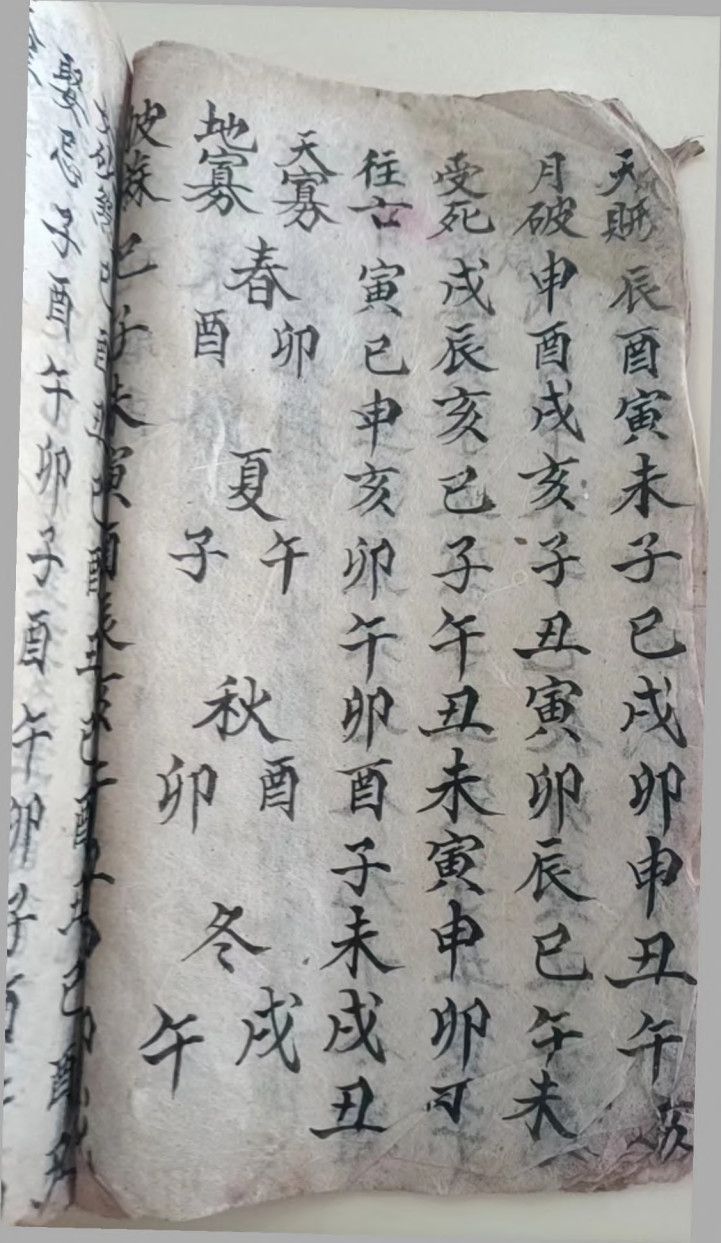 天賊辰酉寅未子巳戌卯申丑午亥
月破申酉戌亥子丑寅卯辰巳午未
受死戌辰亥巳子午丑未寅申卯酉
往亡寅巳申亥卯午卯酉子未戌丑
天寡卯午酉戌
春夏秋冬
地寡酉子卯午
娶忌子酉午卯子酉午卯子酉